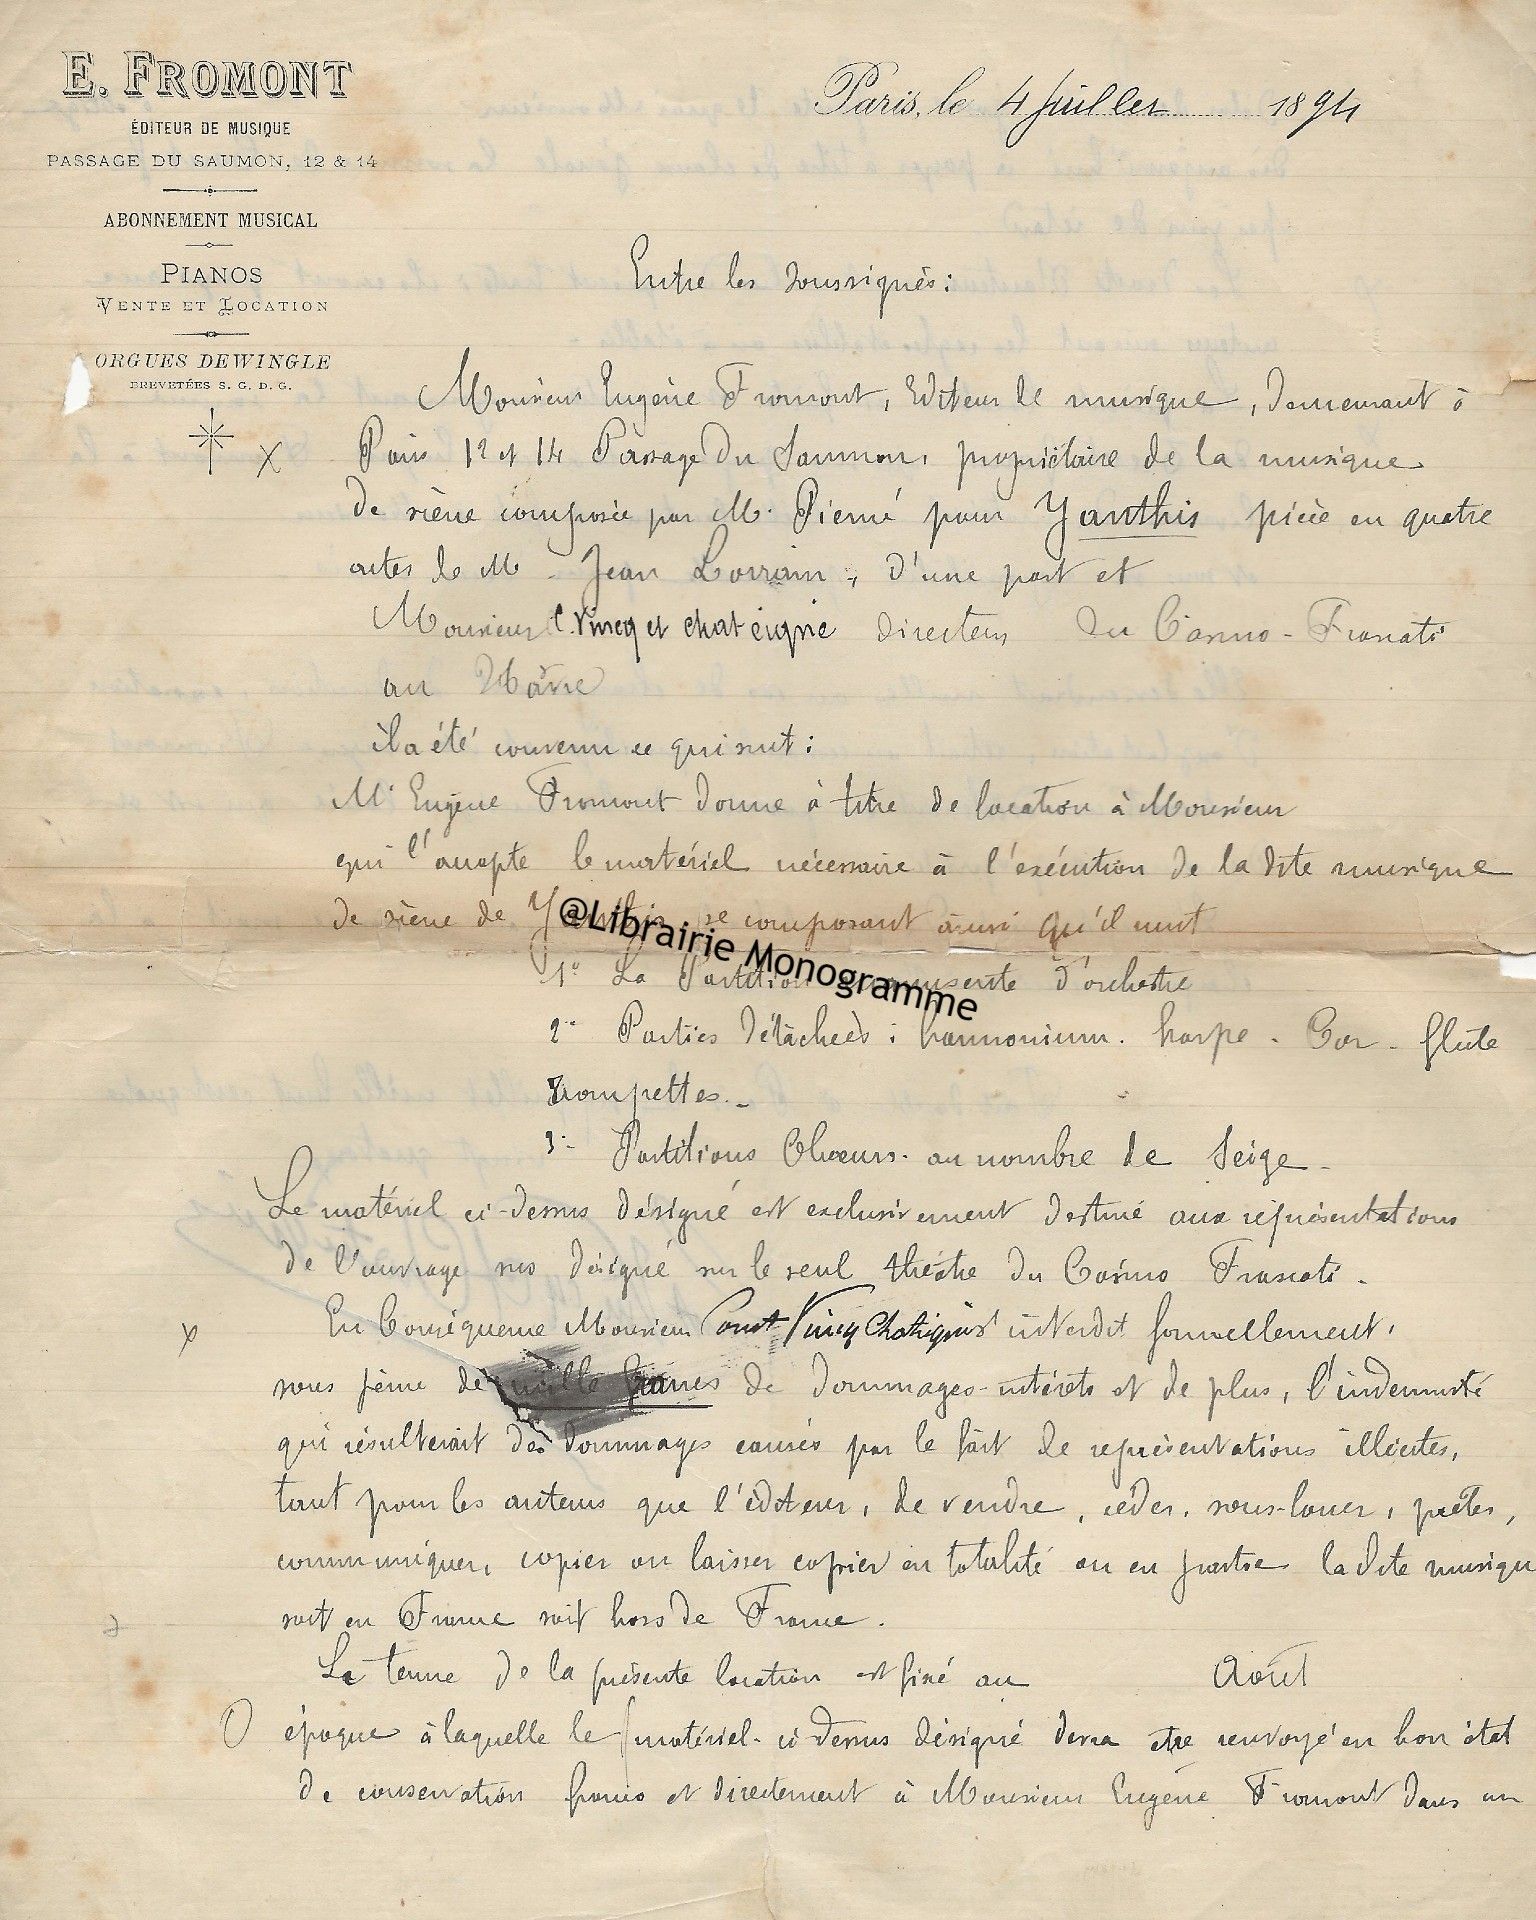 E. FROMONT
ÉDITEUR DE MUSIQUE
PASSAGE DU SAUMON, 12 & 14
ABONNEMENT MUSICAL
PIANOS
VENTE ET LOCATION
ORGUES DEWINGLE
BREVETÉES S. G. D. G.
Paris, le 4 Juillet 1894
Entre les soussignés :
Monsieur Eugène Fromont, Editeur de musique, demeurant à
x Paris 12 et 14 Passage du Saumon, propriétaire de la musique
de scène composée par M. Pierné pour Yanthis pièce en quatre
actes de M. Jean Lorrain, d'une part et
Monsieur Vincq et chateigné directeurs du Casino-Frascati
au Hâvre
il a été convenu ce qui suit :
Mr Eugène Fromont donne à titre de location à Monsieur
qui l'accepte le matériel nécessaire à l'exécution de la dite musique
de scène de Yanthis se composant ainsi qu'il suit
@Librairie Monogramme
1° La Partition manuscrite d'orchestre
2° Parties détachées : harmonium. harpe - Cor - flûte
Trompettes. -
3° Partitions Choeurs. au nombre de seize -
Le matériel ci-dessus désigné est exclusivement destiné aux représentations
de l'ouvrage sus désigné sur le seul théâtre du Casino Frascati.
x En Conséquence Monsieur Vincq Chateigné s'interdit formellement,
sous peine de mille francs de dommages-intérêts et de plus, l'indemnité
qui résulterait des dommages causés par le fait de représentations illicites,
tant pour les auteurs que l'éditeur, de vendre, céder, sous-louer, prêter,
communiquer, copier ou laisser copier en totalité ou en partie la dite musique
soit en France soit hors de France.
Le terme de la présente location est fixé au Août
époque à laquelle le matériel ci-dessus désigné devra etre renvoyé en bon état
de conservation franco et directement à Monsieur Eugène Fromont dans un